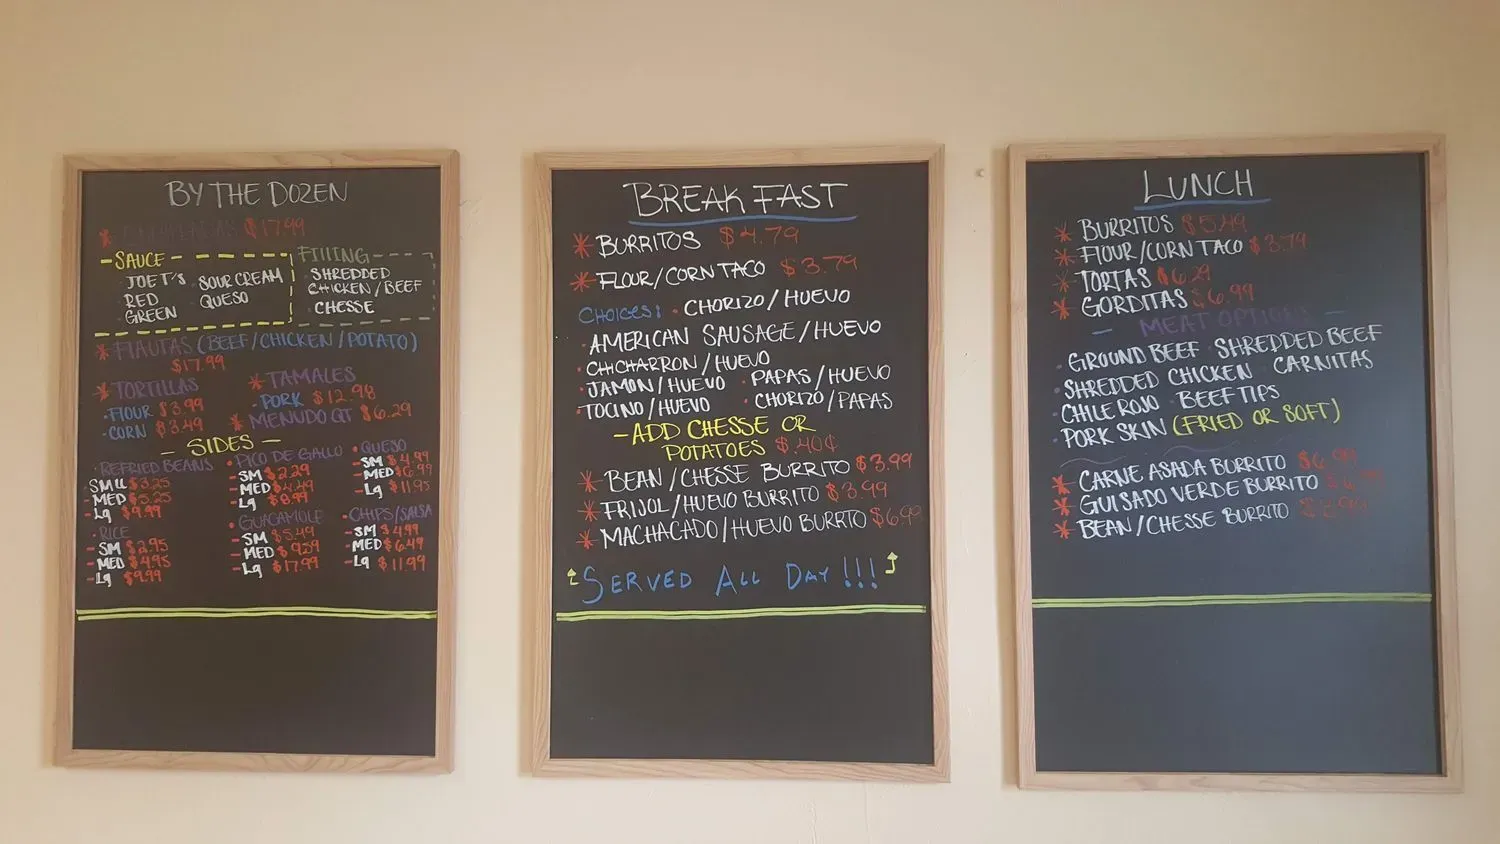 BY THE DOZEN
* ENCHILADAS $17.99
- SAUCE -
· JOE T'S · SOUR CREAM
· RED · QUESO
· GREEN
FILLING
· SHREDDED
CHICKEN/BEEF
· CHESSE
* FLAUTAS (BEEF/CHICKEN/POTATO)
$17.99
* TORTILLAS
· FLOUR $3.99
· CORN $3.49
* TAMALES
· PORK $12.98
* MENUDO QT $6.29
- SIDES -
· REFRIED BEANS
- SMLL $3.25
- MED $5.25
- Lg $9.99
· PICO DE GALLO
- SM $2.29
- MED $4.49
- Lg $8.99
· QUESO
- SM $4.99
- MED $6.99
- Lg $11.95
· RICE
- SM $2.95
- MED $4.95
- Lg $9.99
· GUACAMOLE
- SM $5.49
- MED $9.29
- Lg $17.99
· CHIPS/SALSA
- SM $4.99
- MED $6.49
- Lg $11.99
BREAKFAST
* BURRITOS $4.79
* FLOUR/CORN TACO $3.79
CHOICES: · CHORIZO/HUEVO
· AMERICAN SAUSAGE/HUEVO
· CHICHARRON/HUEVO
· JAMON/HUEVO · PAPAS/HUEVO
· TOCINO/HUEVO · CHORIZO/PAPAS
- ADD CHESSE OR
POTATOES $.40¢
* BEAN/CHESSE BURRITO $3.99
* FRIJOL/HUEVO BURRITO $3.99
* MACHACADO/HUEVO BURRTO $6.99
SERVED ALL DAY!!!
LUNCH
* BURRITOS $5.49
* FLOUR/CORN TACO $3.79
* TORTAS $6.29
* GORDITAS $6.99
- MEAT OPTIONS -
· GROUND BEEF · SHREDDED BEEF
· SHREDDED CHICKEN · CARNITAS
· CHILE ROJO · BEEF TIPS
· PORK SKIN (FRIED OR SOFT)
* CARNE ASADA BURRITO
* GUISADO VERDE BURRITO
* BEAN/CHESSE BURRITO